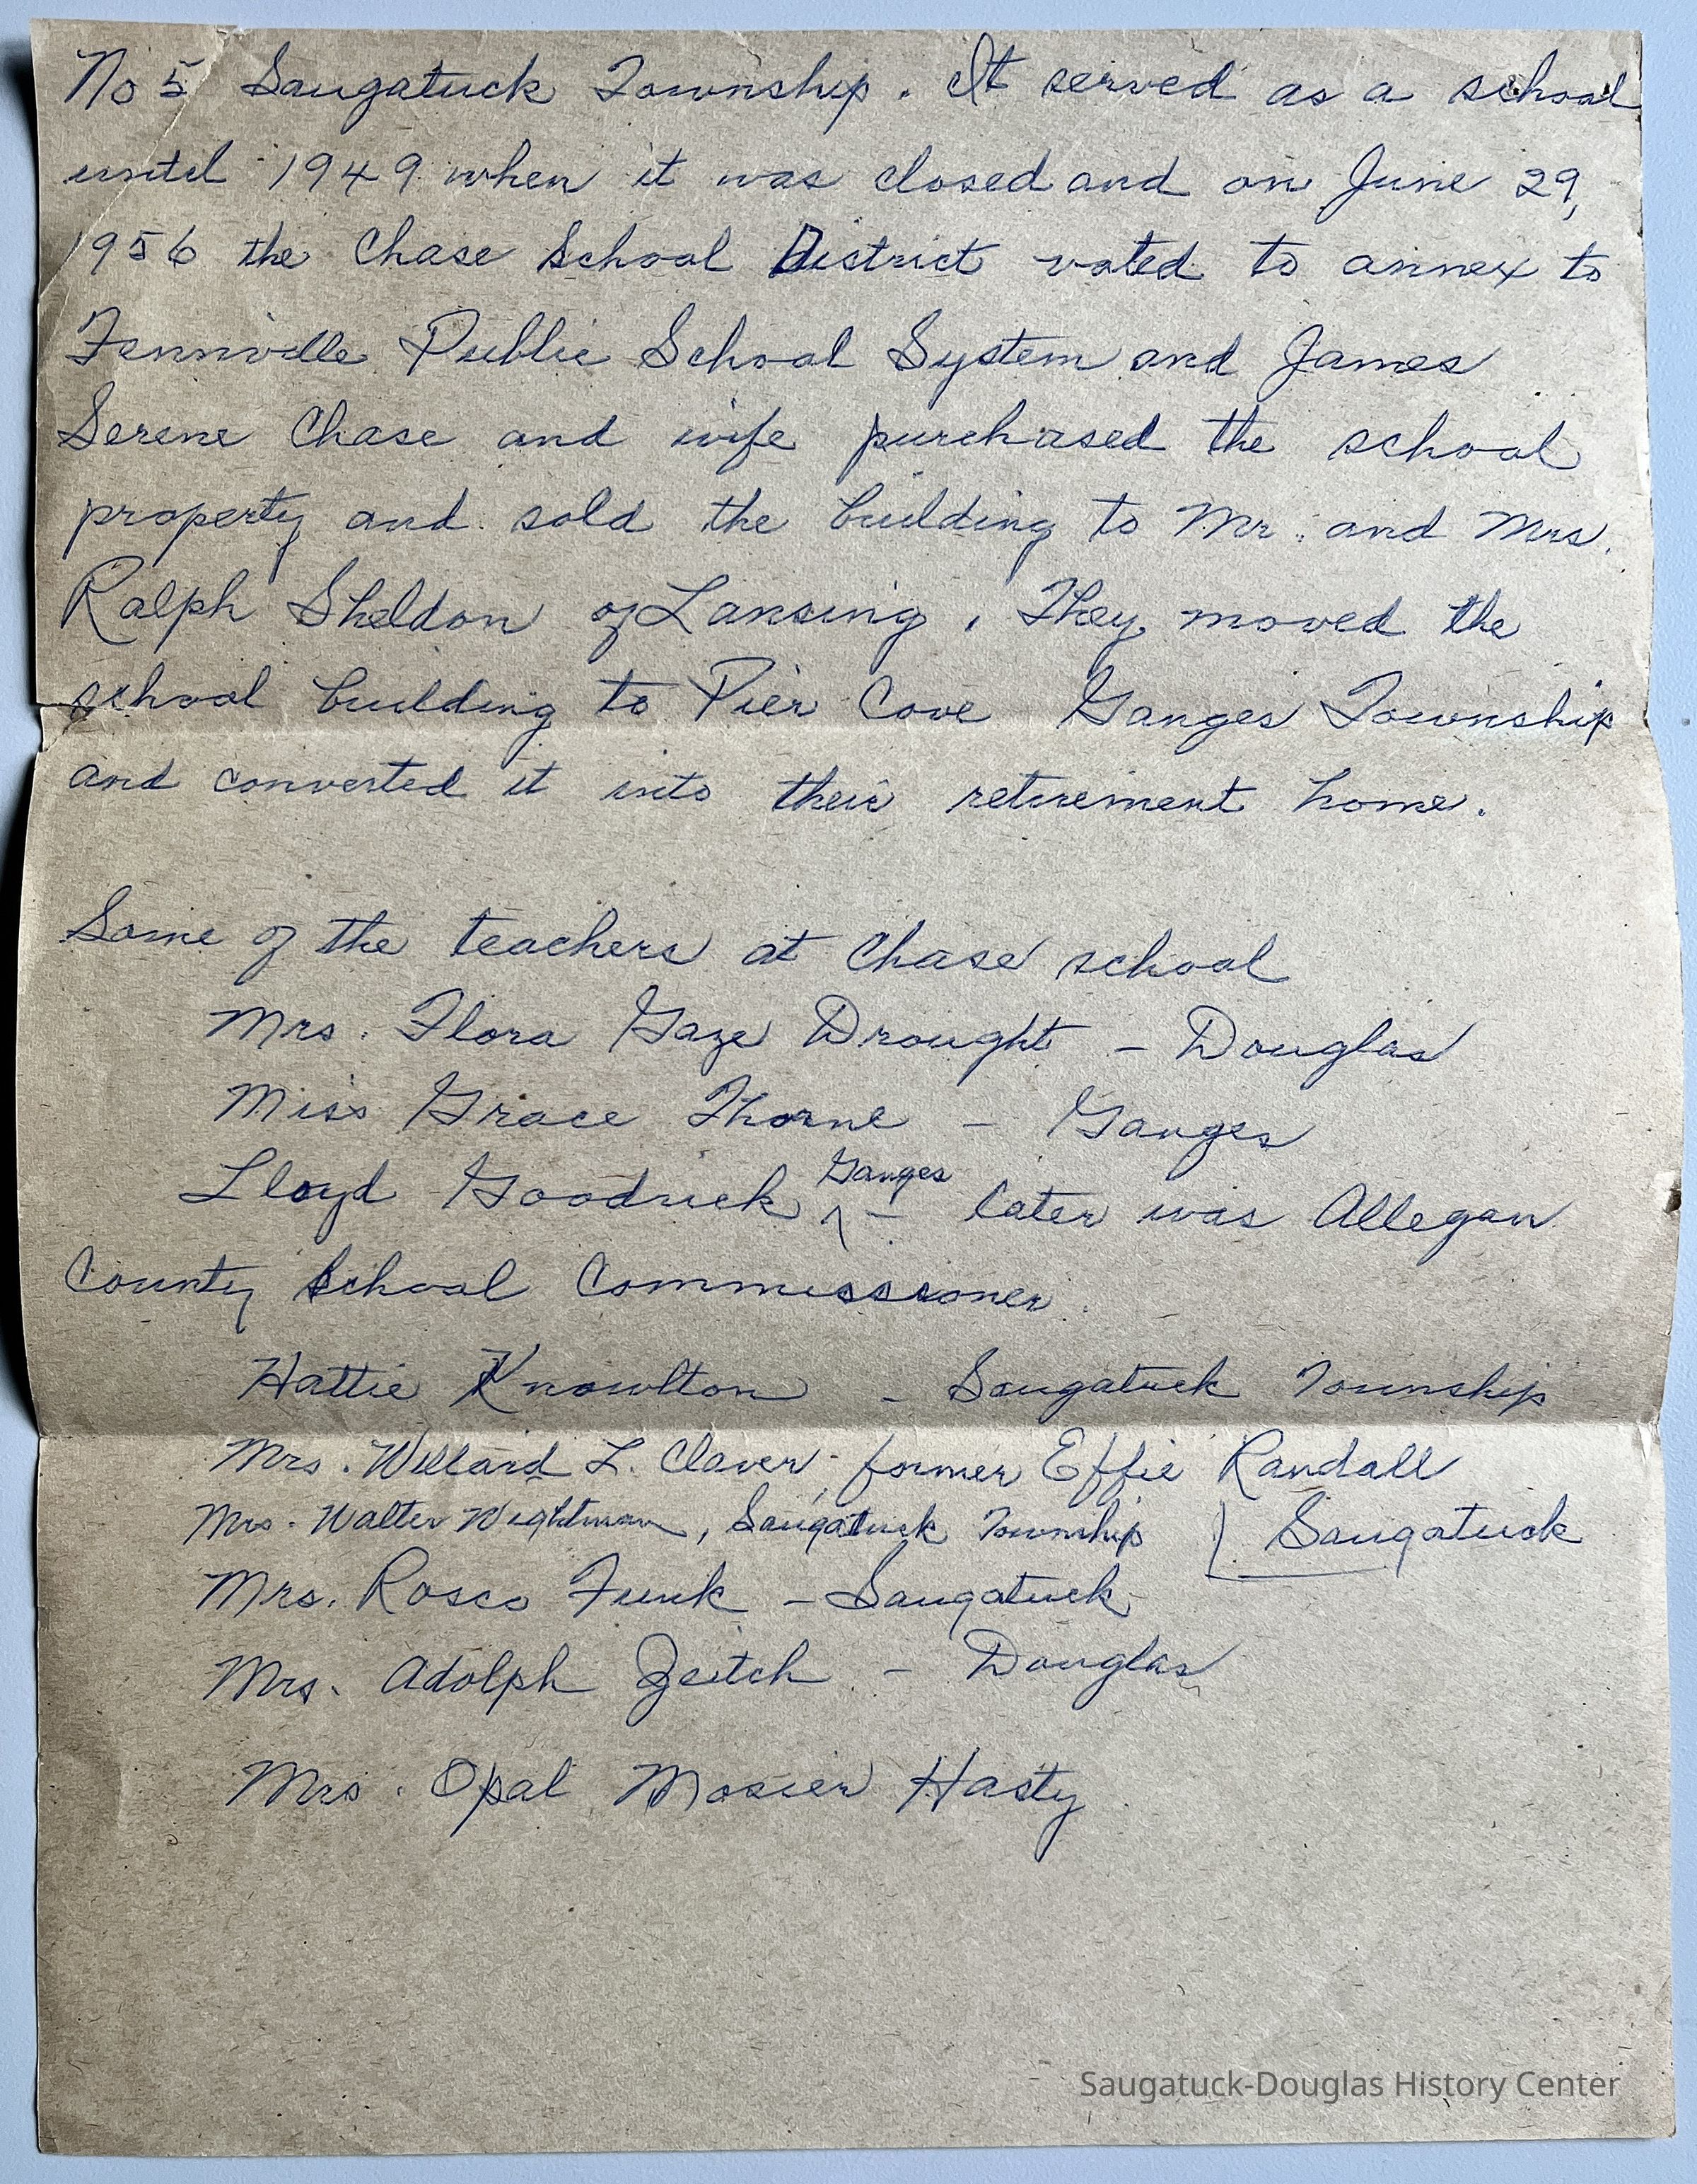 No 5 Saugatuck Township. It served as a school
until 1949 when it was closed and on June 29,
1956 the Chase School District voted to annex to
Fennville Public School System and James
Serene Chase and wife purchased the school
property and sold the building to Mr. and Mrs.
Ralph Sheldon of Lansing. They moved the
school building to Pier Cove Ganges Township
and converted it into their retirement home.
Some of the teachers at Chase school
Mrs. Flora Gaze Drought - Douglas
Miss Grace Thorne - Ganges
Lloyd Goodrick Ganges - later was Allegan
County School Commissioner
Hattie Knowlton - Saugatuck Township
Mrs. Willard L. Claver, former Effie Randall
Mrs. Walter Wightman, Saugatuck Township Saugatuck
Mrs. Rosco Funk - Saugatuck
Mrs. Adolph Zeitch - Douglas
Mrs. Opal Mosier Hasty
Saugatuck-Douglas History Center